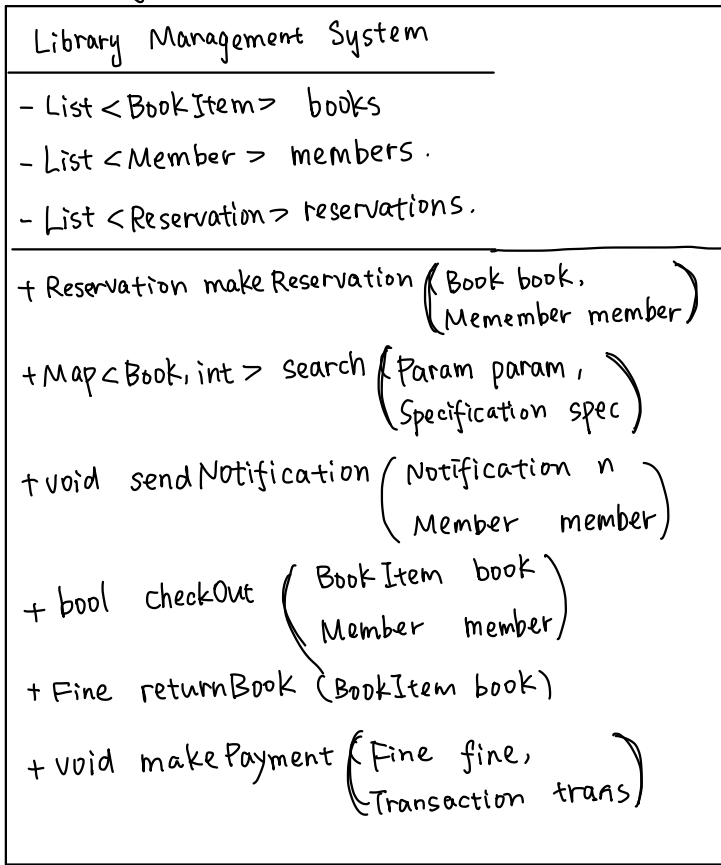 Library Management System
- List <BookItem> books
- List <Member> members.
- List <Reservation> reservations.
+ Reservation makeReservation (Book book,
Memember member)
+ Map<Book, int> search (Param param,
Specification spec)
+ void sendNotification (Notification n
Member member)
+ bool checkOut (BookItem book
Member member)
+ Fine returnBook (BookItem book)
+ void makePayment (Fine fine,
Transaction trans)